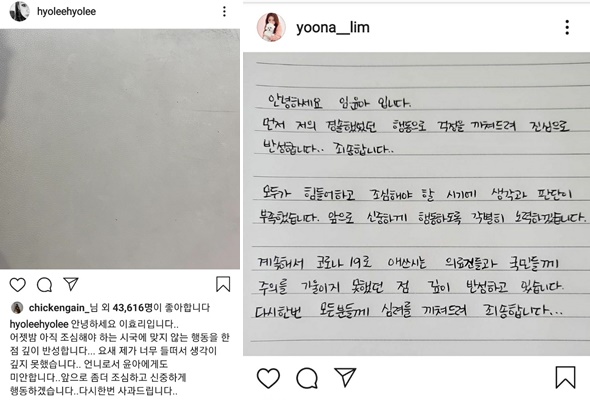 hyoleehyolee
chickengain_님 외 43,616명이 좋아합니다
hyoleehyolee 안녕하세요 이효리입니다..
어젯밤 아직 조심해야 하는 시국에 맞지 않는 행동을 한
점 깊이 반성합니다... 요새 제가 너무 들떠서 생각이
깊지 못했습니다.. 언니로서 윤아에게도
미안합니다..앞으로 좀더 조심하고 신중하게
행동하겠습니다..다시한번 사과드립니다..
yoona__lim
안녕하세요 임윤아 입니다.
먼저 저의 경솔했었던 행동으로 걱정을 끼쳐드려 진심으로
반성합니다.. 죄송합니다..
모두가 힘들어하고 조심해야 할 시기에 생각과 판단이
부족했습니다. 앞으로 신중하게 행동하도록 각별히 노력하겠습니다.
계속해서 코로나 19로 애쓰시는 의료진들과 국민들께
주의를 기울이지 못했던 점 깊이 반성하고 있습니다.
다시한번 모든분들께 심려를 끼쳐드려 죄송합니다...